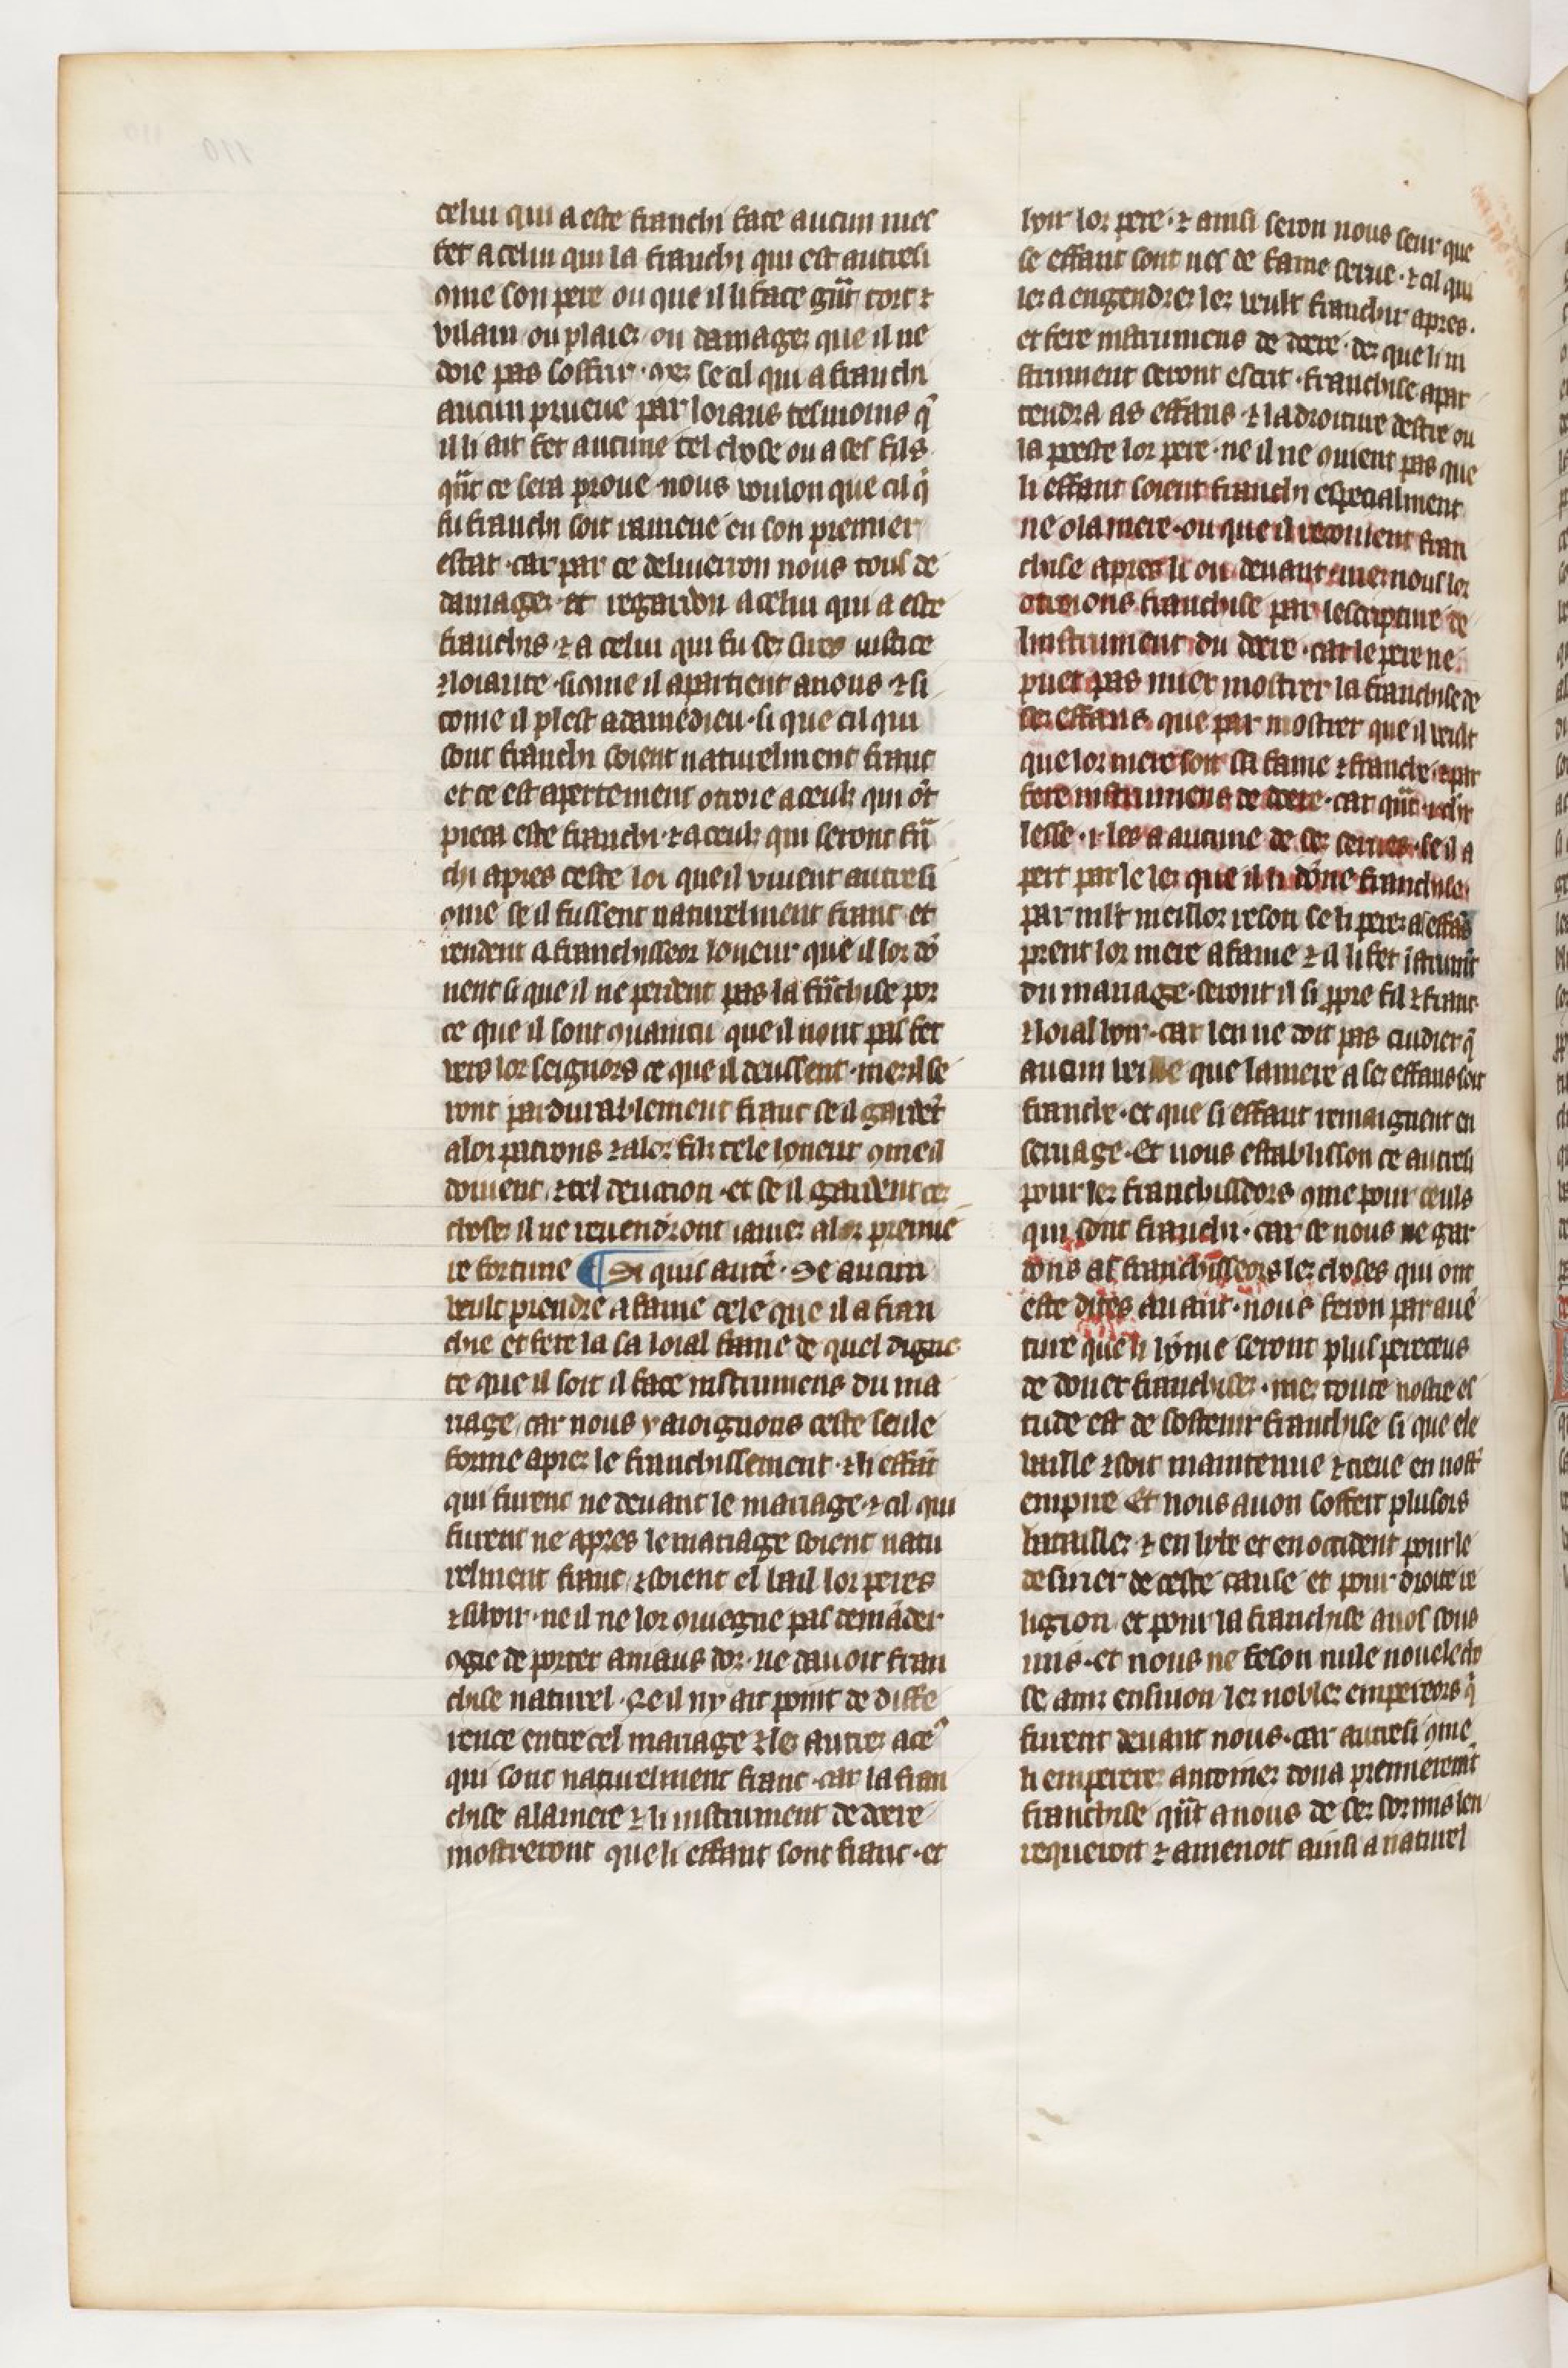 celui qui a este franchi face aucun mes
fet a celui qui la franchi qui est autresi
ꝯme son pere ou que il li face gñt tort ⁊
vilain ou plaies ou damages que il ne
doie pas soffrir · mes se cil qui a franchi
aucun prueue par loiaus tesmoins q̃
il li ait fet aucune tel chose ou a ses fils
qñt ce sera proue nous voulon que cil q̃
fu franchi soit ramene en son premier
estat · car par ce deliuerron nous tous de
damages et regardon a celui qui a este
franchis ⁊ a celui qui fu ses sires iustice
⁊ loiaute · si ꝯme il apartient a nous ⁊ si
come il plest a damedieu · si que cil qui
sont franchi soient naturelment franc
et ce est apertement otroie a ceuls qui õt
pieca este franchi · ⁊ a ceuls qui seront frã
chi apres ceste loi que il viuent autresi
ꝯme se il fussent naturelment franc et
rendent a franchisseor loneur que il lor dõ
nent si que il ne perdent pas la frãchise por
ce que il sont que il nont pas fet
vers lor seignors ce que il deussent · mes il se
ront pardurablement franc se il gardẽt
a lor patrons ⁊ a lor filz tele honeur ꝯme il
doiuent ⁊ tel · et se il gardent ces
choses il ne reuendront iames a lor premie
re fortune ¶ Si quis autẽ · Se aucun
veult prendre a fame cele que il a fran
chie et fere la sa loial fame de quel digne
te que il soit il face instrumens du ma
riage car nous y aioignons ceste seule
forme apres le franchissement · ⁊ li effãt
qui furent ne deuant le mariage ⁊ cil qui
furent ne apres le mariage soient natu
relment franc ⁊ soient el lor peres
⁊ si hoir · ne il ne lor ꝯuiegne pas demãder
ꝯgie de porter aniaus dor · ne dauoir fran
chise naturel · Se il ny ait point de diffe
rence entre cel mariage ⁊ les autres a ceˢ
qui sont naturelment franc · car la fran
chise a la mere ⁊ li instrument de doere
mostreront que li effant sont franc · et
hoir lor pere · ⁊ ainsi seron nous seur que
se effant sont nes de fame serue · ⁊ cil qui
les a engendres les veult franchir apres ·
et fere instrumens de doere · des que li in
strument seront escrit · franchise apar
tendra as effans · ⁊ la droiture destre ou
la poeste lor pere · ne il ne ꝯuient pas que
li effant soient franchi especialment
ne o la mere · ou que il recoiuent fran
chise apres li ou deuant · mes nous les
otroions franchise par lescripture de
linstrument du doere · car le pere ne
puet pas miex mostrer la franchise de
ses effans que par mostrer que il veult
que lor mere soit sa fame ⁊ franche ⁊ par
fere instrumens de doere · car qñt
lesse · i · les a aucune de ses serues · se il a
pert par le les que il li dõne franchise
par mlt meillor reson se li peres as effãs
prent lor mere a fame ⁊ il li fet
du mariage · seront il si ꝓpre fil ⁊ franc
⁊ loial hoir · car len ne doit pas cuidier q̃
aucun veille que la mere a ses effans soit
franche · et que li effant remaignent en
seruage · Et nous establisson ce autresi
pour les franchisseors ꝯme pour ceuls
qui sont franchi · car se nous ne gar
dons as franchisseors les choses qui ont
este dites auant · nous feron par auẽ
ture que li home seront plus pereceus
de doner franchises · mes toute nostre es
tude est de sostenir franchise si que ele
vaille ⁊ soit maintenue ⁊ creue en nost̃
empire Et nous auon soffert plusors
batailles ⁊ en libe et en occident pour le
desirier de ceste cause et pour droite re
ligion et pour la franchise a nos sous
mis · et nous ne feson nule nouele cho
se ainz ensiuon les nobles empereors q̃
furent deuant nous · car autresi ꝯme
li empereres antoines dona premieremẽt
franchise qñt a nous de ses sormis len
requeroit ⁊ amenoit ainsi a naturel